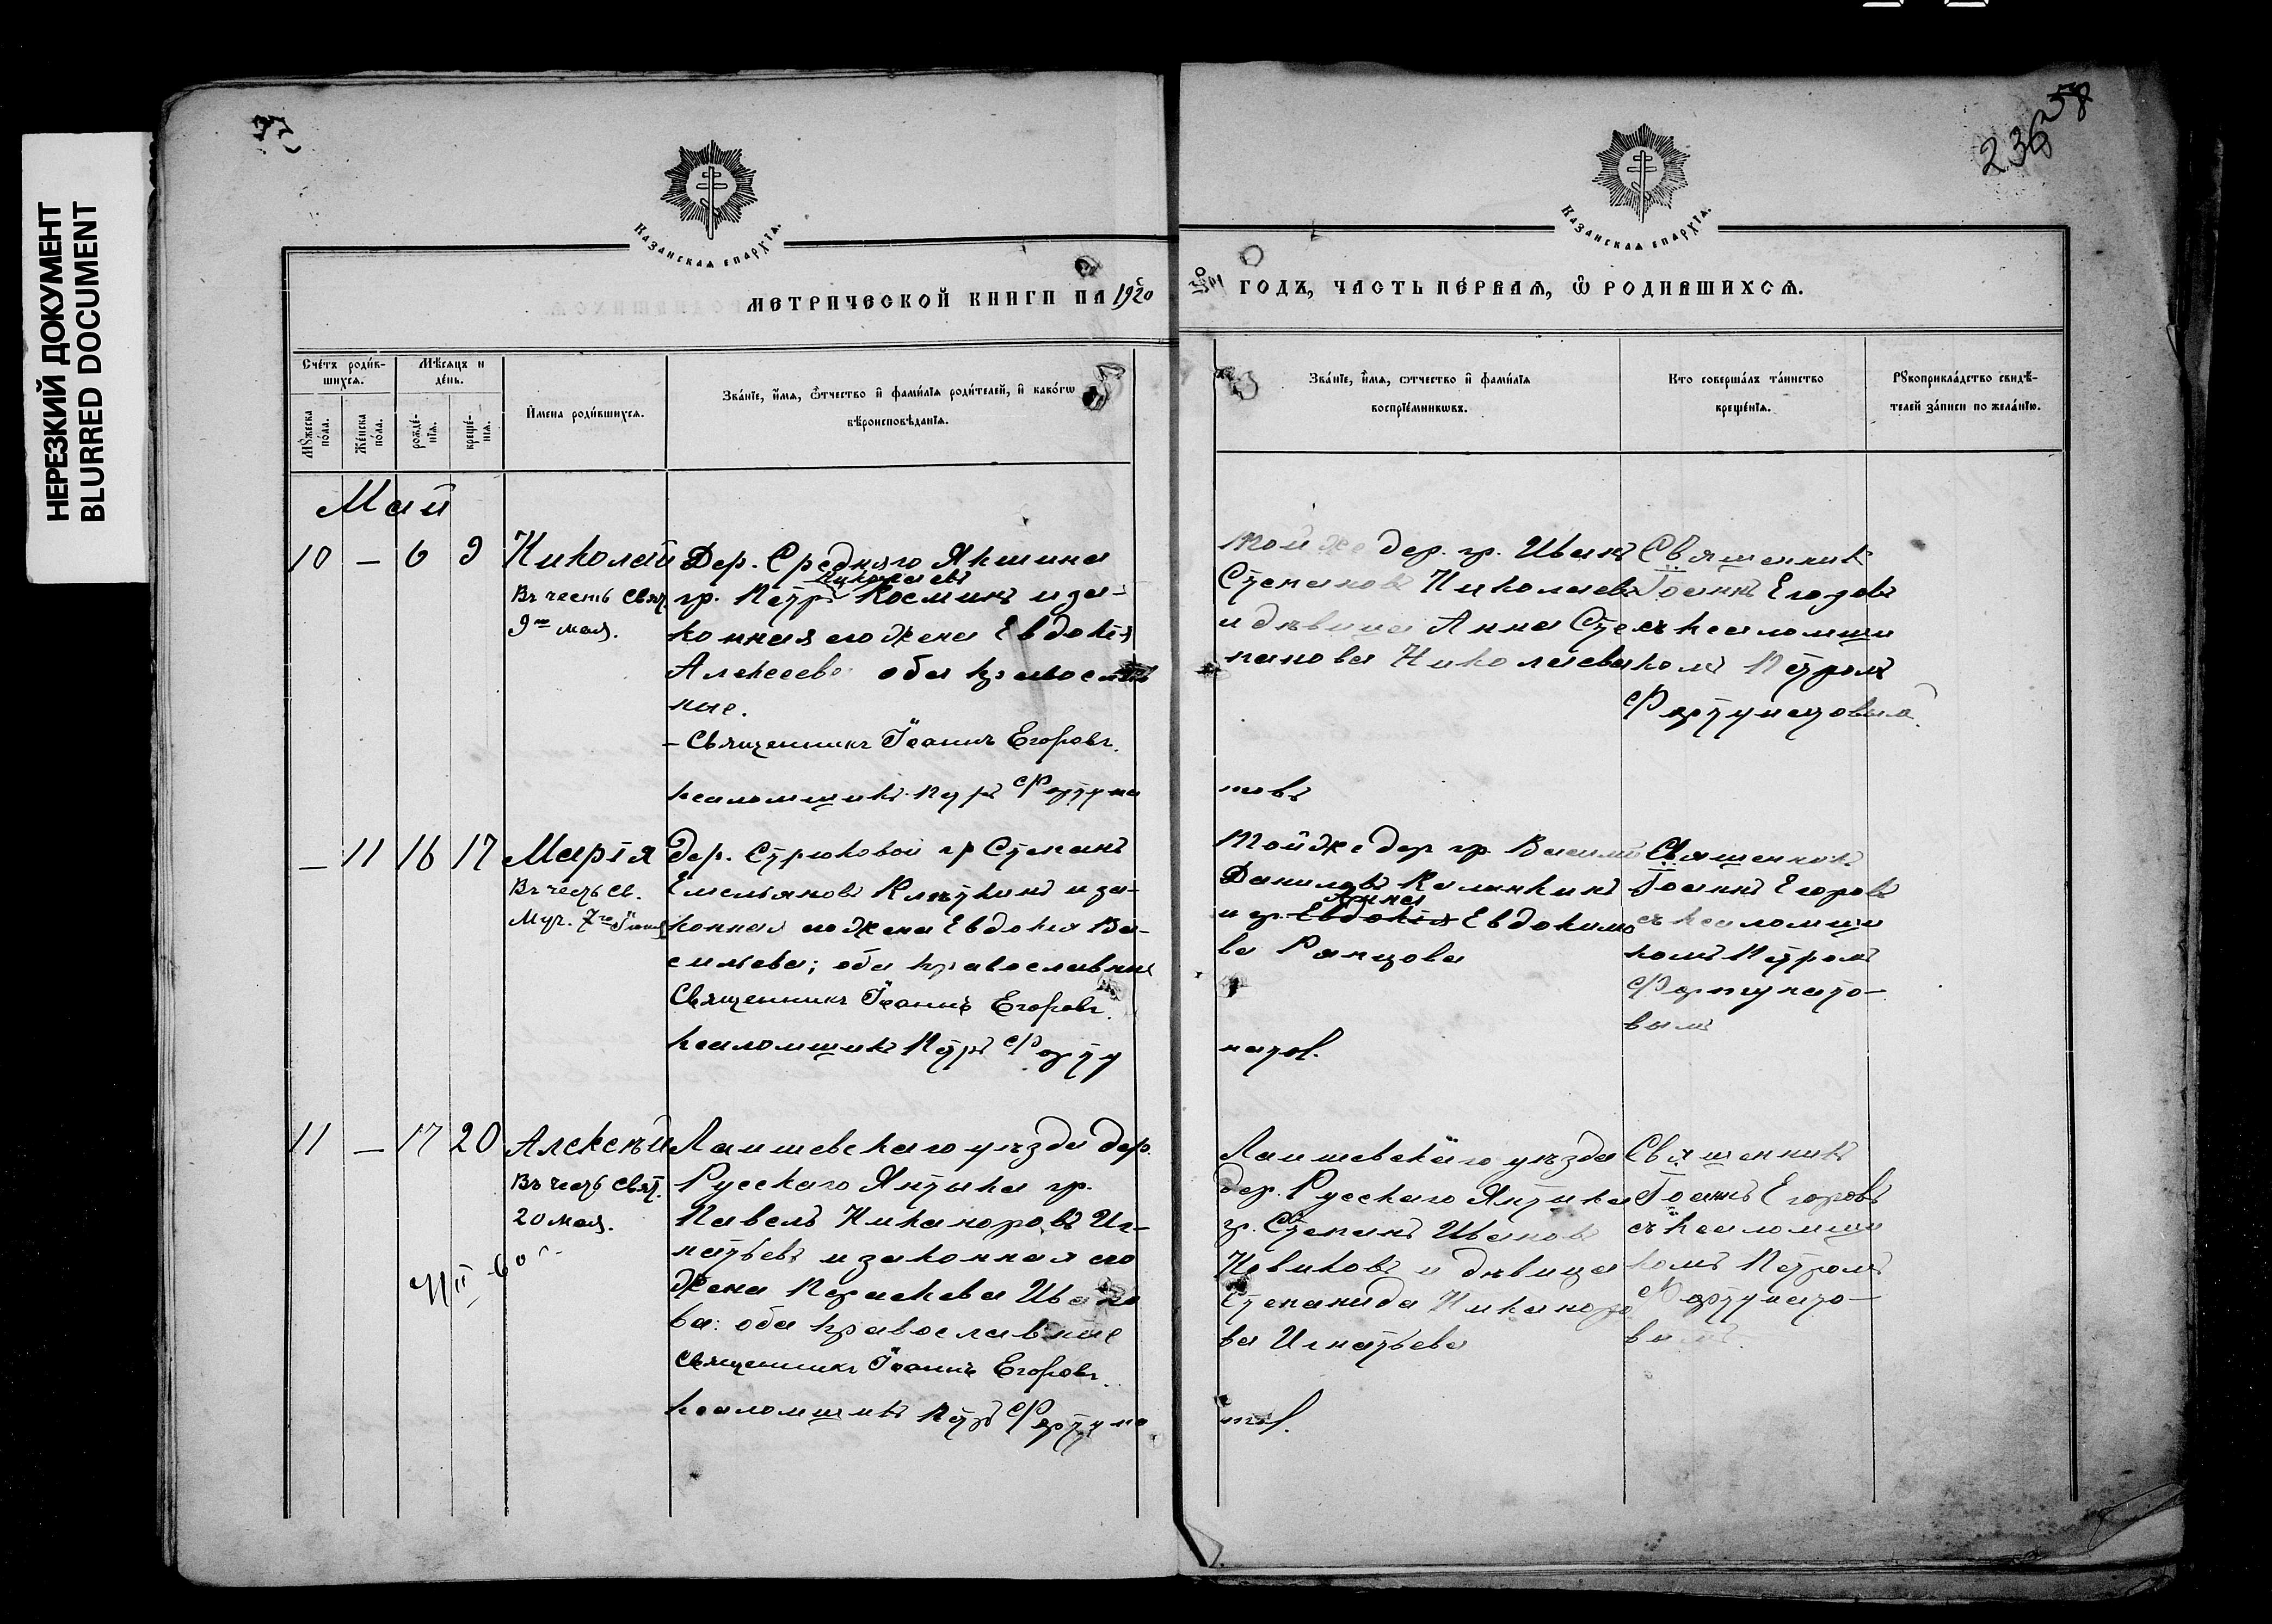 НЕРЕЗКИЙ ДОКУМЕНТ
BLURRED DOCUMENT
236
58
Казанская епархїа.
Казанская епархїа.
МЕТРИЧЕСКОЙ КНИГИ НА 1920
ГОДЪ, ЧАСТЬ ПЕ́РВАѦ, Ѿ РОДИВШИХСѦ.
Сче́тъ роди́в-
шихсѧ.
Мꙋ́жеска по́ла.
Же́нска по́ла.
Мѣ́сѧцъ и
де́нь.
рожде́-
нїѧ.
креще́-
нїѧ.
И҆мена роди́вшихсѧ.
Зва́нїе, и҆́мѧ, ѻ҆́тчество и҆ фами́лїѧ роди́телей, и҆ како́гѡ
вѣроисповѣ́данїѧ.
Зва́нїе, и҆́мѧ, ѻ҆́тчество и҆ фами́лїѧ
воспрїе́мникѡвъ.
Кто соверша́лъ та́инство
креще́нїѧ.
Рꙋкоприкла́дство свидѣ́-
телей за́писи по жела́нїю.
Май
10 — 6 9 Николай
Въ честь Свят.
9го мая.
Дер. Средняго Якшина
Николаевъ
гр. Петръ Косминъ и за-
конная его жена Евдокія
Алексеева оба православ
ные.
– Священникъ Іоаннъ Егоровъ.
псаломщикъ Петръ Фортуна
товъ
Той же дер. гр. Иванъ
Степановъ Николаевъ
и дѣвица Анна Сте
панова Николаева
Священникъ
Іоаннъ Егоровъ
съ псаломщи
комъ Петромъ
Фортунатовымъ
— 11 16 17 Марія
Въ честь Св.
Муч. 7го Іюня
дер. Стрюковой гр Степанъ
Емельяновъ Клюткинъ и за-
конная его жена Евдокия Ва-
сильева; оба православные
Священникъ Іоаннъ Егоровъ.
псаломщикъ Петръ Форту
натов.
Той же дер гр. Василий
Даниловъ Калинкинъ
Анна
и гр. Евдокія Евдокимо
ва Рянцова
Священникъ
Іоаннъ Егоровъ
съ псаломщи
комъ Петромъ
Фортунато-
вымъ
11 — 17 20 Алексѣй
Въ честь Свят.
20 мая.
Лаишевскаго уѣзда дер.
Русскаго Янтыка гр.
Павелъ Никаноровъ Иг-
натьевъ и законная его
жена Параскева Ивано
ва: оба православные
Священникъ Іоаннъ Егоровъ.
псаломщикъ Петръ Фортуна
тов.
Лаишевскаго уѣзда
дер. Русскаго Янтыка
гр. Степанъ Ивановъ
Новиковъ и дѣвица
Степанида Никаноро
ва Игнатьева
Священникъ
Іоаннъ Егоровъ
съ псаломщи
комъ Петромъ
Фортунато-
вымъ